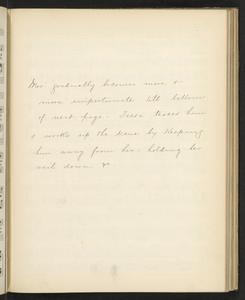 Mrs. gradually becomes more &
more importunate till bottom
of next page. Tessa teases him
& works up the scene by keeping
him away from her - holding her
veil down &